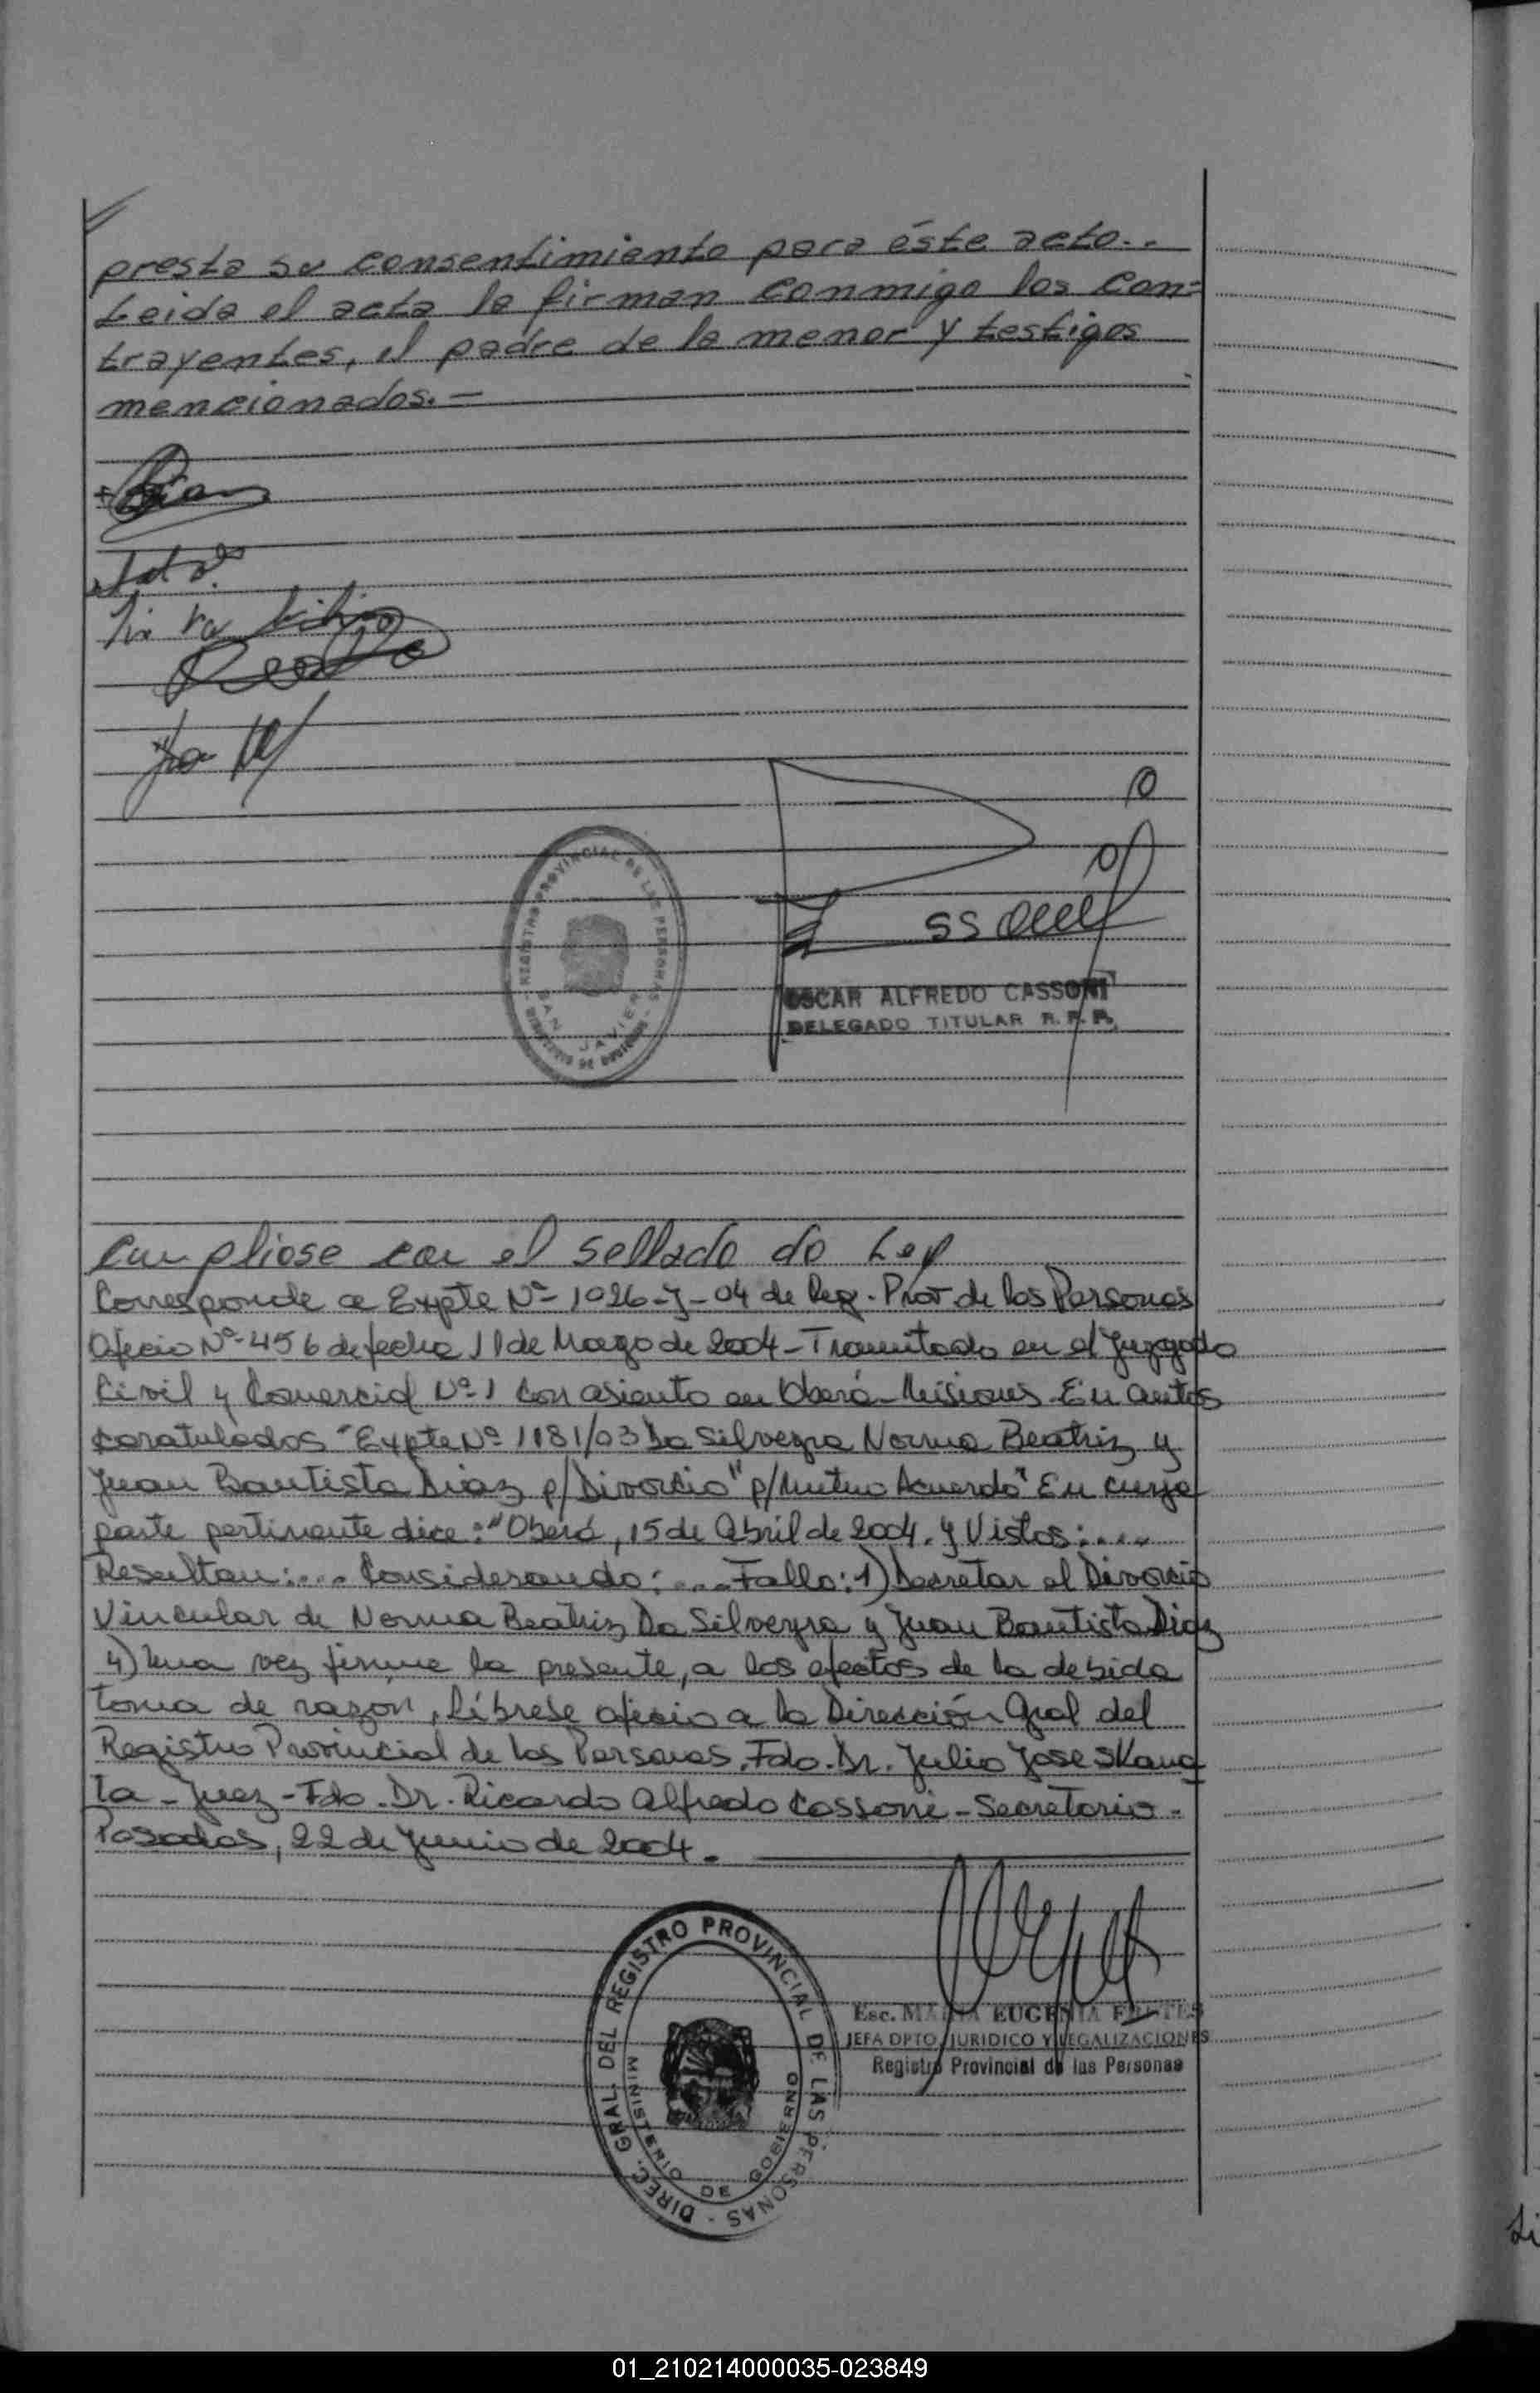 presta su consentimiento para éste acto..
Leida el acta la firman conmigo los con=
trayentes, el padre de la menor y testigos
mencionados.—
REGISTRO PROVINCIAL DE LAS PERSONAS
SAN JAVIER
OSCAR ALFREDO CASSONI
DELEGADO TITULAR R. P. P.
Cumpliose con el sellado de Ley
Corresponde a Expte Nº 1026-J-04 de Reg. Prov de las Personas
Oficio Nº 456 de fecha 11 de Marzo de 2004 - Tramitado en el Juzgado
Civil y Comercial Nº 1 con asiento en Oberá - Misiones. En autos
caratulados "Expte Nº 1181/03 Da Silveyra Norma Beatriz y
Juan Bautista Diaz p/Divorcio" p/Mutuo Acuerdo" En cuya
parte pertinente dice: "Oberá, 15 de Abril de 2004. y Vistos:....
Resultan:.... Considerando:.... Fallo: 1) Decretar el Divorcio
Vincular de Norma Beatriz Da Silveyra y Juan Bautista Diaz
4) Una vez firme la presente, a los efectos de la debida
toma de razón, líbrese oficio a la Dirección Gral del
Registro Provincial de las Personas. Fdo. Dr. Julio Jose Skang
ta - Juez - Fdo. Dr. Ricardo Alfredo Cassoni - Secretorio -
Posadas, 22 de Junio de 2004.
DIREC. GRAL. DEL REGISTRO PROVINCIAL DE LAS PERSONAS -
MINISTERIO DE GOBIERNO
Esc. MARIA EUGENIA
JEFA DPTO. JURIDICO Y LEGALIZACIONES
Registro Provincial de las Personas
01_210214000035-023849